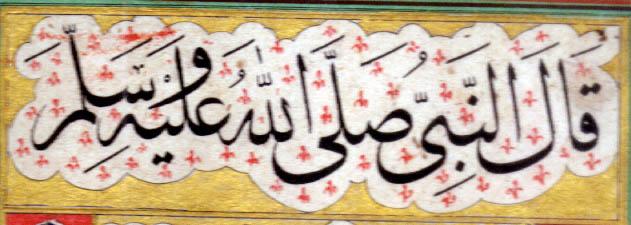 قَالَ النَّبِىُّ صَلَّى اللّٰهُ عَلَيْهِ وَسَلَّمَ